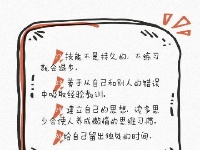 技能不是持久的，不练习
就会退步。
善于从自己和别人的错误
中吸取经验教训。
建立自己的思想，读多思
少会使人养成懒惰的思维习惯。
给自己留出独处的时间.